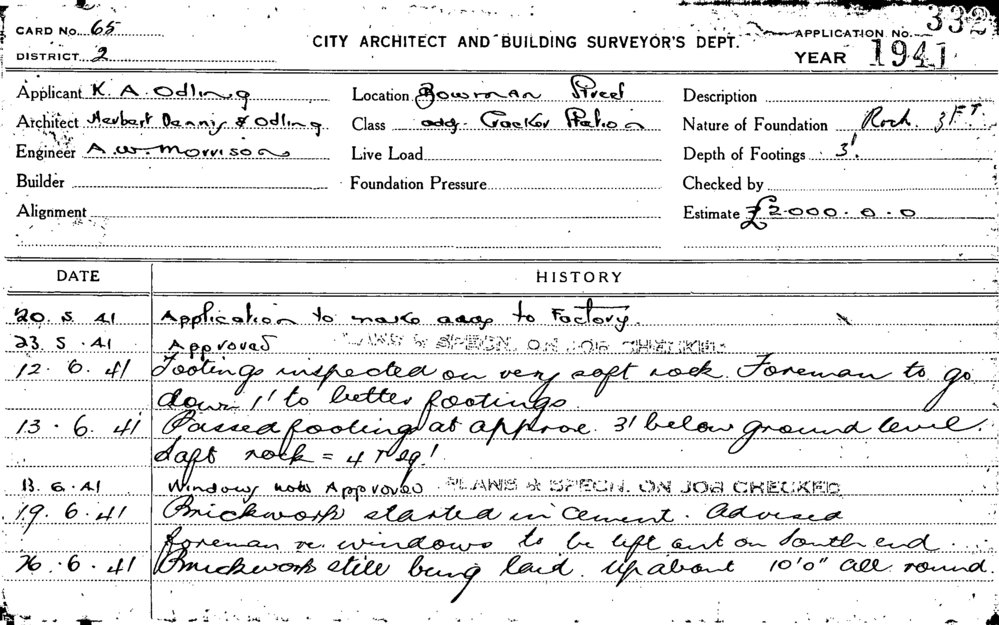 CARD No. 65
DISTRICT 2
CITY ARCHITECT AND BUILDING SURVEYOR'S DEPT.
APPLICATION No. 332
YEAR 1941
Applicant K. A. Odling
Location Bowman Street
Description
Architect Herbert Dennis & Odling
Class adg. Station
Nature of Foundation Rock 3FT.
Engineer A. W. Morrison
Live Load
Depth of Footings 3'
Builder
Foundation Pressure
Checked by
Alignment
Estimate £2000.0.0
DATE HISTORY
20. 5. 41 Application to make adds to Factory.
23. 5. 41 Approved PLANS & SPECN. ON JOB CHECKED
12. 6. 41 Footings inspected on very soft rock. Foreman to go
down 1' to better footings.
13. 6. 41 Passed footing at approx. 3' below ground level.
Soft rock = 4 T sq'
13. 6. 41 Windows not Approved PLANS & SPECN. ON JOB CHECKED
19. 6. 41 Brickwork started in cement. Advised
foreman re. windows to be left out on South end.
26. 6. 41 Brickwork still being laid. Up about 10'0" all round.